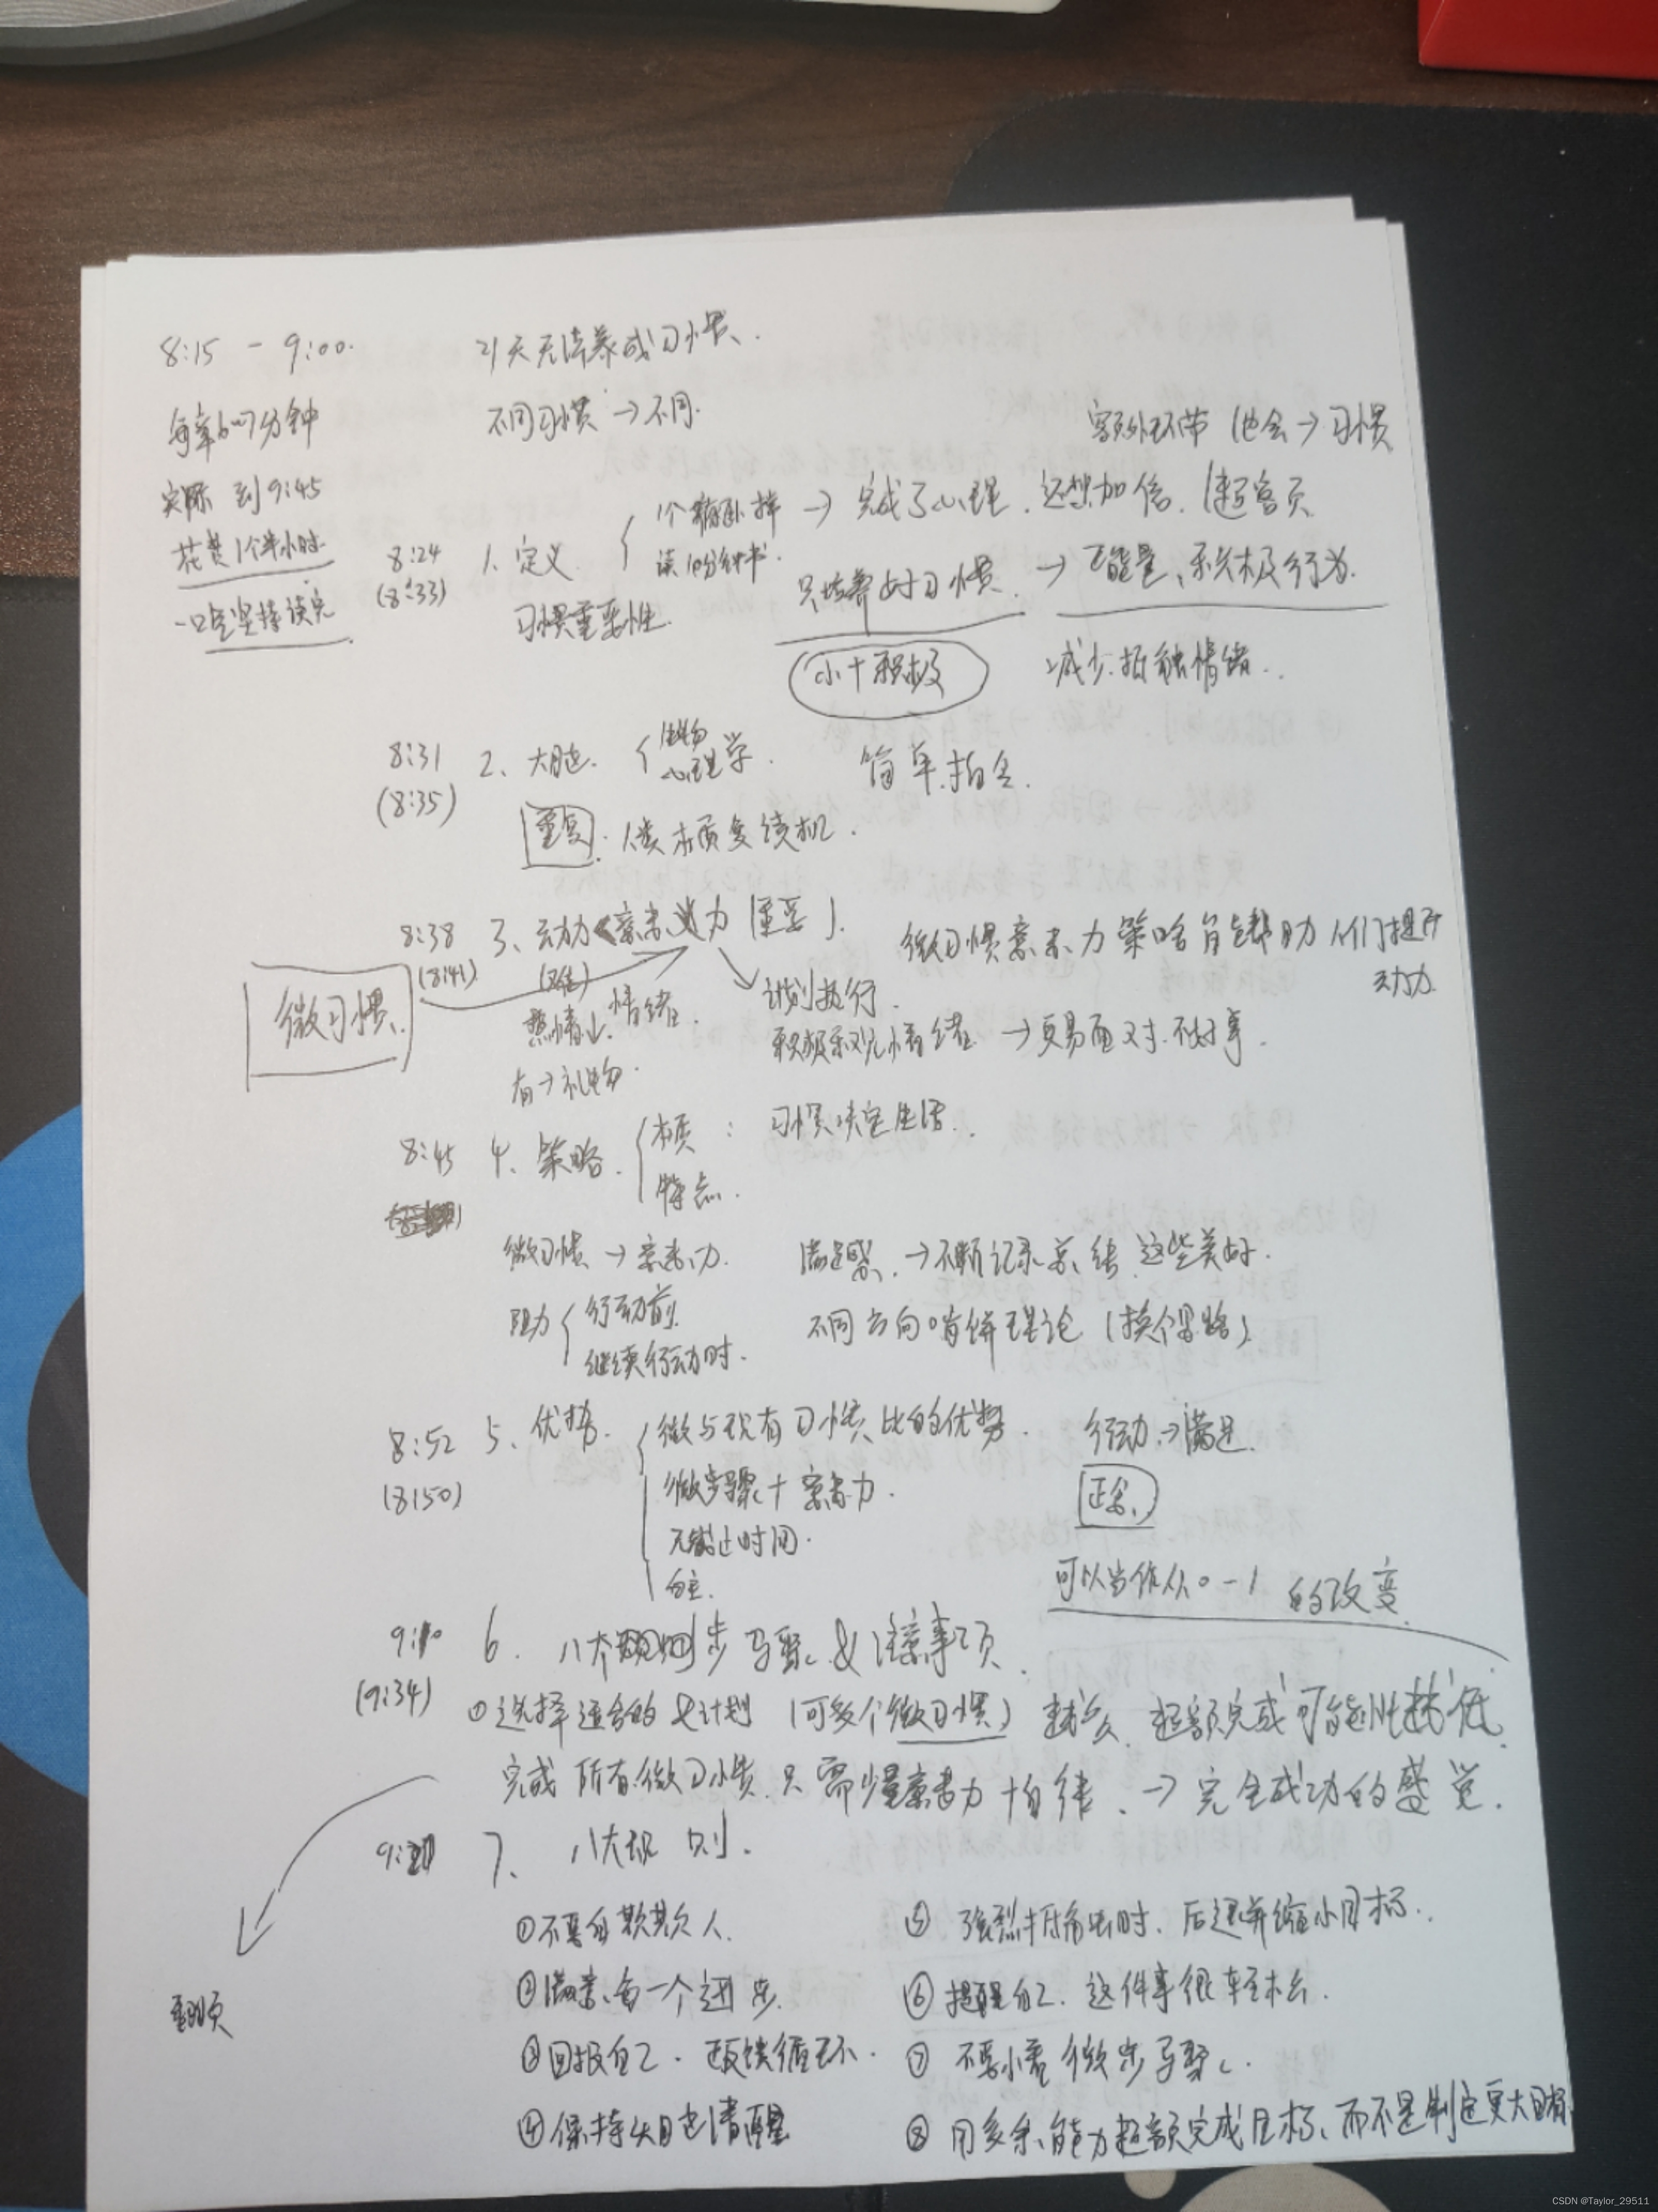 8:15 - 9:00.
21天无法养成习惯.
每章6-7分钟
不同习惯 → 不同.
额外环带 也会 → 习惯
实际 到9:45
花费1个半小时
一口气坚持读完
8:24
(8:33)
1. 定义
1个俯卧撑 → 完成了心理, 还想加倍. (超额)
读10分钟书.
习惯重要性.
只培养好习惯. → 正能量、积极行为.
小+积极
减少抵触情绪.
8:31
(8:35)
2、大脑.
生物
心理学.
简单.指令.
重复. 人类本质复读机.
8:38
(8:41)
3、动力<意志力 [重要].
微习惯意志力策略能帮助人们提升
动力
微习惯.
热情↓ 情绪.
计划执行.
积极乐观情绪 → 更易面对不好事.
有→礼物.
8:45
4、策略.
本质: 习惯决定生活.
特点.
微习惯 → 意志力.
满足感. → 不断记录总结 这些美好.
阻力
行动前.
继续行动时.
不同方向啃饼理论 (换个思路)
8:52
(8:50)
5、优势.
微与现有习惯比的优势.
行动→满足.
微步骤+意志力.
正念.
无截止时间.
自主.
可以当作从0-1 的改变
9:10
(9:34)
6. 八大步骤 & 注意事项.
①选择适合的&计划 (可多个微习惯) 越多 超额完成可能性越低.
完成所有微习惯.只需少量意志力+自律. → 完全成功的感觉.
7、八大规则.
翻页
①不要自欺欺人.
②满意每一个进步.
③回报自己. 正反馈循环.
④保持头目也清醒
⑤ 强烈抵触时. 后退并缩小目标.
⑥提醒自己. 这件事很轻松.
⑦ 不要小看微步骤.
⑧ 用多余能力超额完成目标、而不是制定更大目标.
CSDN @Taylor_29511